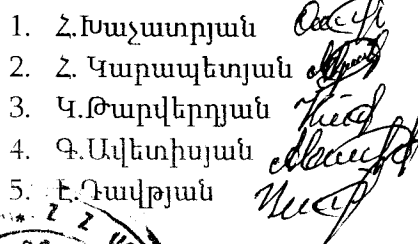 1. Հ.Խաչատրյան
2. Զ. Կարապետյան
3. Կ.Թարվերդյան
4. Գ.Ավետիսյան
5. Է.Դավթյան
* Հ Հ